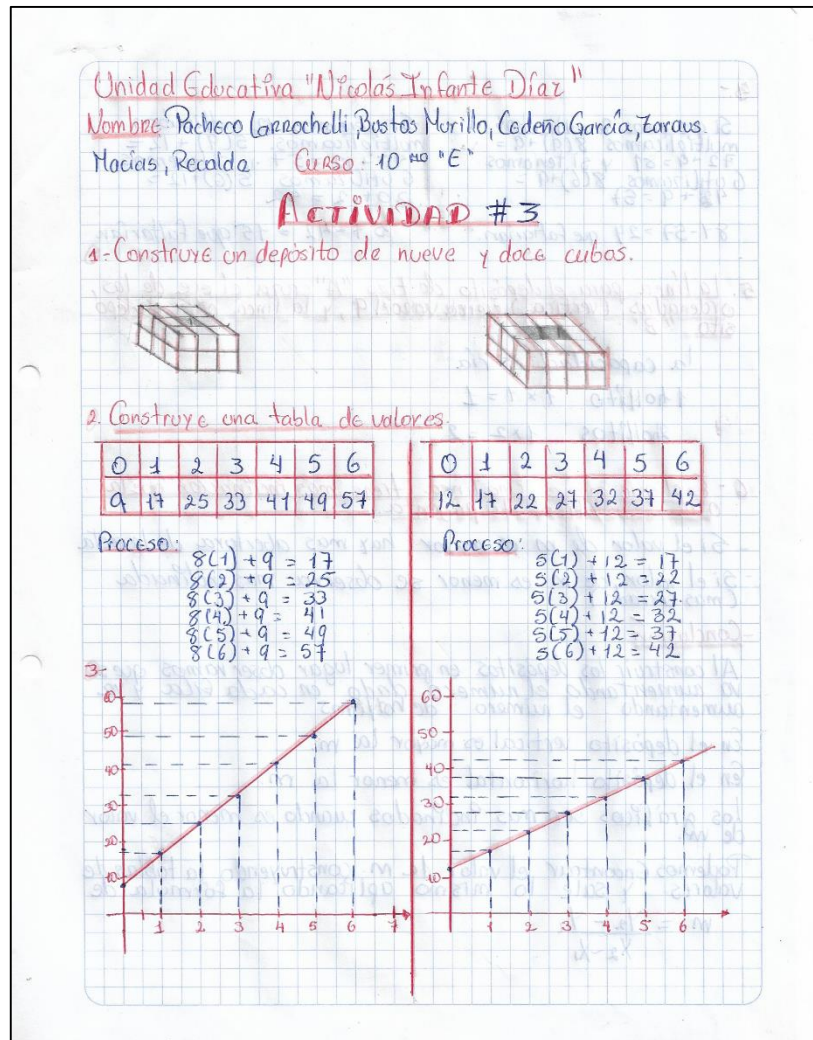 Unidad Educativa "Nicolás Infante Díaz"
Nombre: Pacheco Carrochelli, Bustos Murillo, Cedeño García, Zaraus.
Macías, Recalde Curso. 10 mo "E"
ACTIVIDAD #3
1- Construye un depósito de nueve y doce cubos.
2. Construye una tabla de valores.
0 1 2 3 4 5 6
9 17 25 33 41 49 57
Proceso:
8(1) + 9 = 17
8(2) + 9 = 25
8(3) + 9 = 33
8(4) + 9 = 41
8(5) + 9 = 49
8(6) + 9 = 57
0 1 2 3 4 5 6
12 17 22 27 32 37 42
Proceso:
5(1) + 12 = 17
5(2) + 12 = 22
5(3) + 12 = 27
5(4) + 12 = 32
5(5) + 12 = 37
5(6) + 12 = 42
3-
60
50
40
30
20
10
1 2 3 4 5 6 7
60
50
40
30
20
10
1 2 3 4 5 6